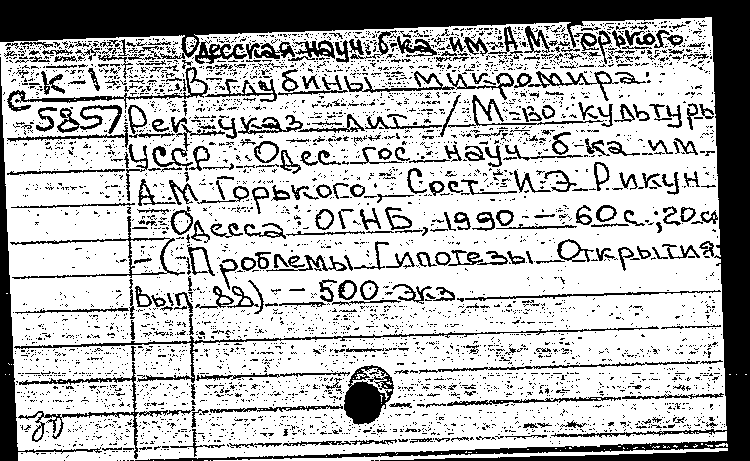 Одесская науч. б-ка им. А.М. Горького
К-1 В глубины микромира:
С 5857 Рек. указ. лит. / М-во культуры
УССР, Одес. гос. науч. б-ка им.
А.М. Горького; Сост. И.Э. Рикун
- Одесса: ОГНБ, 1990. - 60 с.; 20 см
- (Проблемы. Гипотезы. Открытия;
Вып. 88) - 500 экз.
30